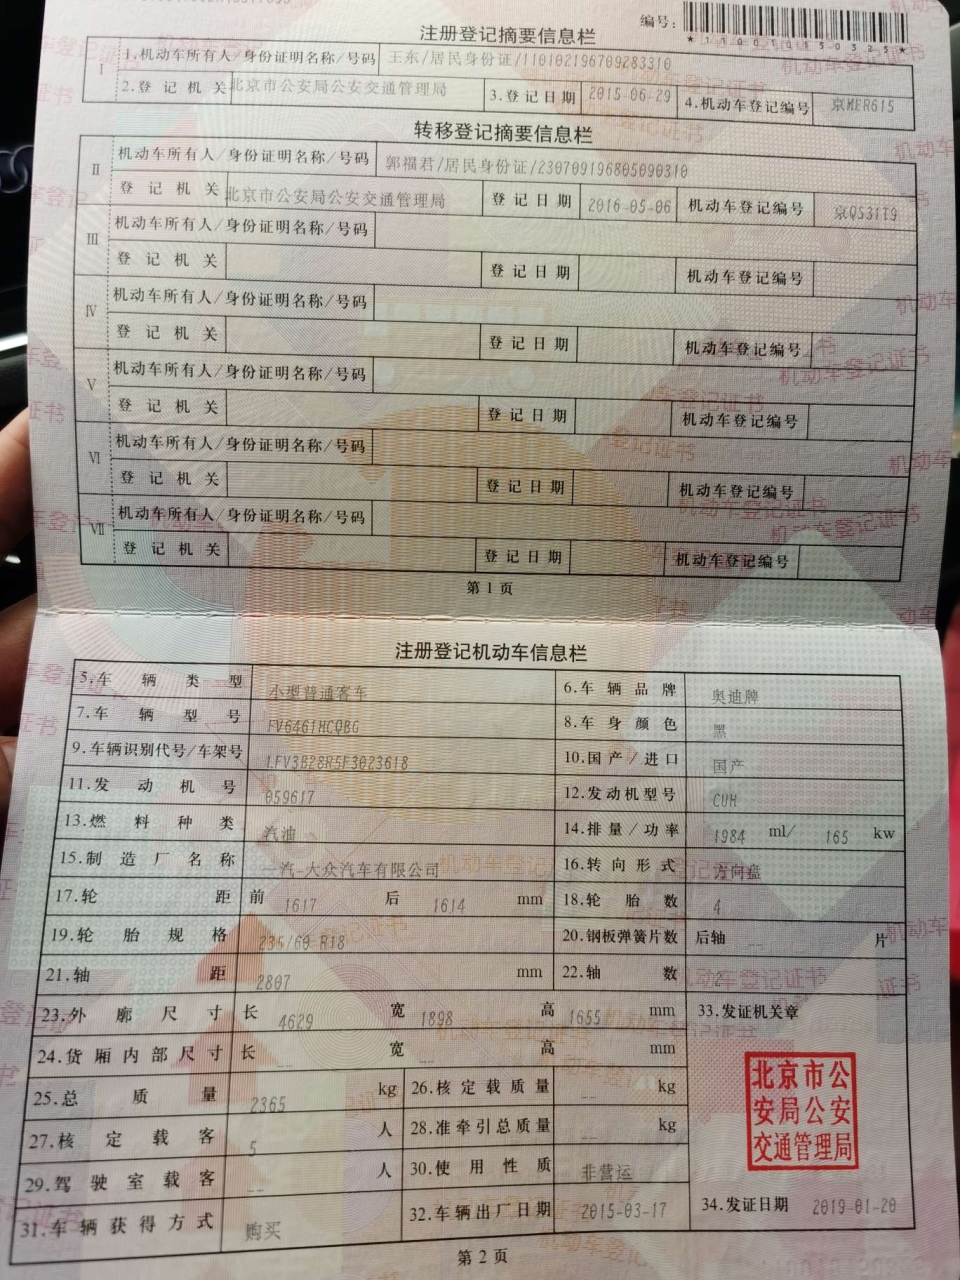 注册登记摘要信息栏
编号:
*110010150325*
I 1.机动车所有人/身份证明名称/号码 王东/居民身份证/110102196709283310
2.登记机关 北京市公安局公安交通管理局 3.登记日期 2015-06-29 4.机动车登记编号 京MER615
转移登记摘要信息栏
II 机动车所有人/身份证明名称/号码 郭福君/居民身份证/230709196805090310
登记机关 北京市公安局公安交通管理局 登记日期 2016-05-06 机动车登记编号 京QS31T9
III 机动车所有人/身份证明名称/号码
登记机关 登记日期 机动车登记编号
IV 机动车所有人/身份证明名称/号码
登记机关 登记日期 机动车登记编号
V 机动车所有人/身份证明名称/号码
登记机关 登记日期 机动车登记编号
VI 机动车所有人/身份证明名称/号码
登记机关 登记日期 机动车登记编号
VII 机动车所有人/身份证明名称/号码
登记机关 登记日期 机动车登记编号
第1页
注册登记机动车信息栏
5.车辆类型 小型普通客车 6.车辆品牌 奥迪牌
7.车辆型号 FV6461HCQBG 8.车身颜色 黑
9.车辆识别代号/车架号 LFV3B28R5F3023618 10.国产/进口 国产
11.发动机号 059617 12.发动机型号 CUH
13.燃料种类 汽油 14.排量/功率 1984 ml/ 165 kw
15.制造厂名称 一汽-大众汽车有限公司 16.转向形式 方向盘
17.轮距 前 1617 后 1614 mm 18.轮胎数 4
19.轮胎规格 235/60 R18 20.钢板弹簧片数 后轴 -- 片
21.轴距 2807 mm 22.轴数 2
23.外廓尺寸 长 4629 宽 1898 高 1655 mm 33.发证机关章
24.货厢内部尺寸 长 -- 宽 -- 高 -- mm
25.总质量 2365 kg 26.核定载质量 -- kg
27.核定载客 5 人 28.准牵引总质量 -- kg
29.驾驶室载客 -- 人 30.使用性质 非营运
31.车辆获得方式 购买 32.车辆出厂日期 2015-03-17 34.发证日期 2019-01-20
北京市公
安局公安
交通管理局
第2页